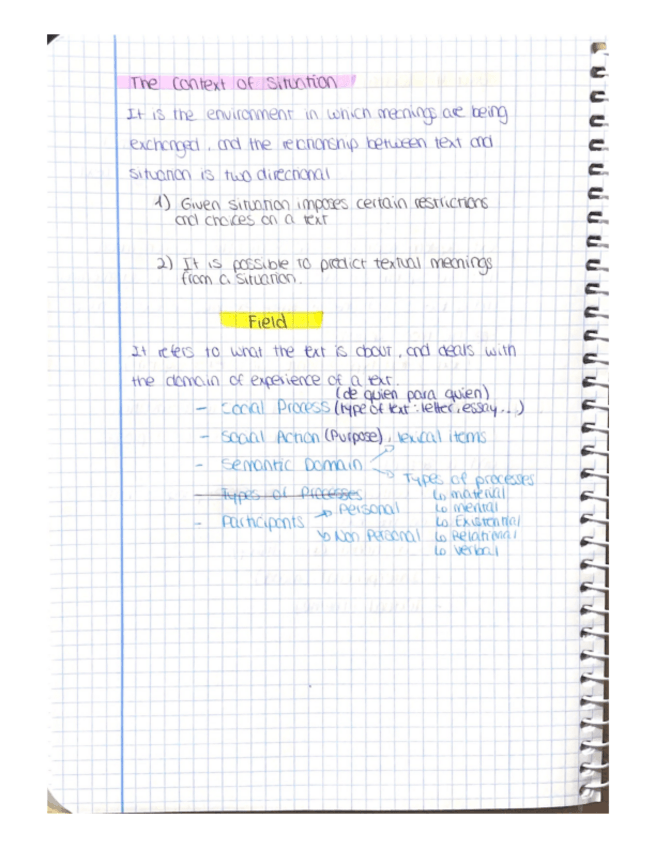 The Context of Situation
It is the environment in which meanings are being
exchanged, and the relationship between text and
situation is two directional
1) Given situation imposes certain restrictions
and choices on a text
2) It is possible to predict textual meanings
from a situation.
Field
It refers to what the text is about, and deals with
the domain of experience of a text.
(de quien para quien)
- Social Process (type of text: letter, essay...)
- Social Action (Purpose), lexical items
- Semantic Domain
Types of processes
- Types of Processes
↳ material
- Participants → Personal
↳ mental
↳ Existential
↳ Non Personal
↳ Relational
↳ verbal